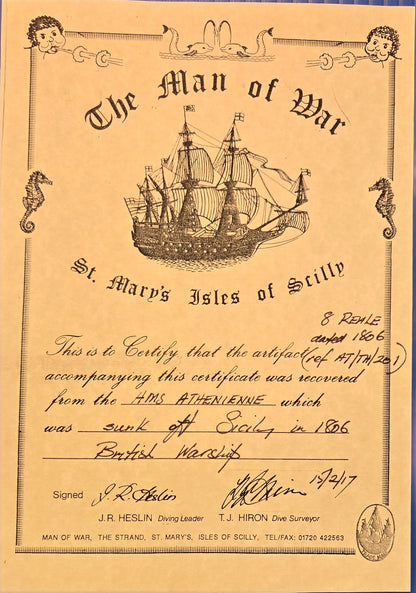 The Man of War
St. Mary's Isles of Scilly
8 REALE
dated 1806
This is to Certify that the artifact (ref AT/TH/201)
accompanying this certificate was recovered
from the HMS ATHENIENNE which
was sunk off Sicily in 1806
British Warship
Signed J.R. Heslin T.J. Hiron 15/2/17
J.R. HESLIN Diving Leader T.J. HIRON Dive Surveyor
MAN OF WAR, THE STRAND, ST. MARY'S, ISLES OF SCILLY, TEL/FAX: 01720 422563